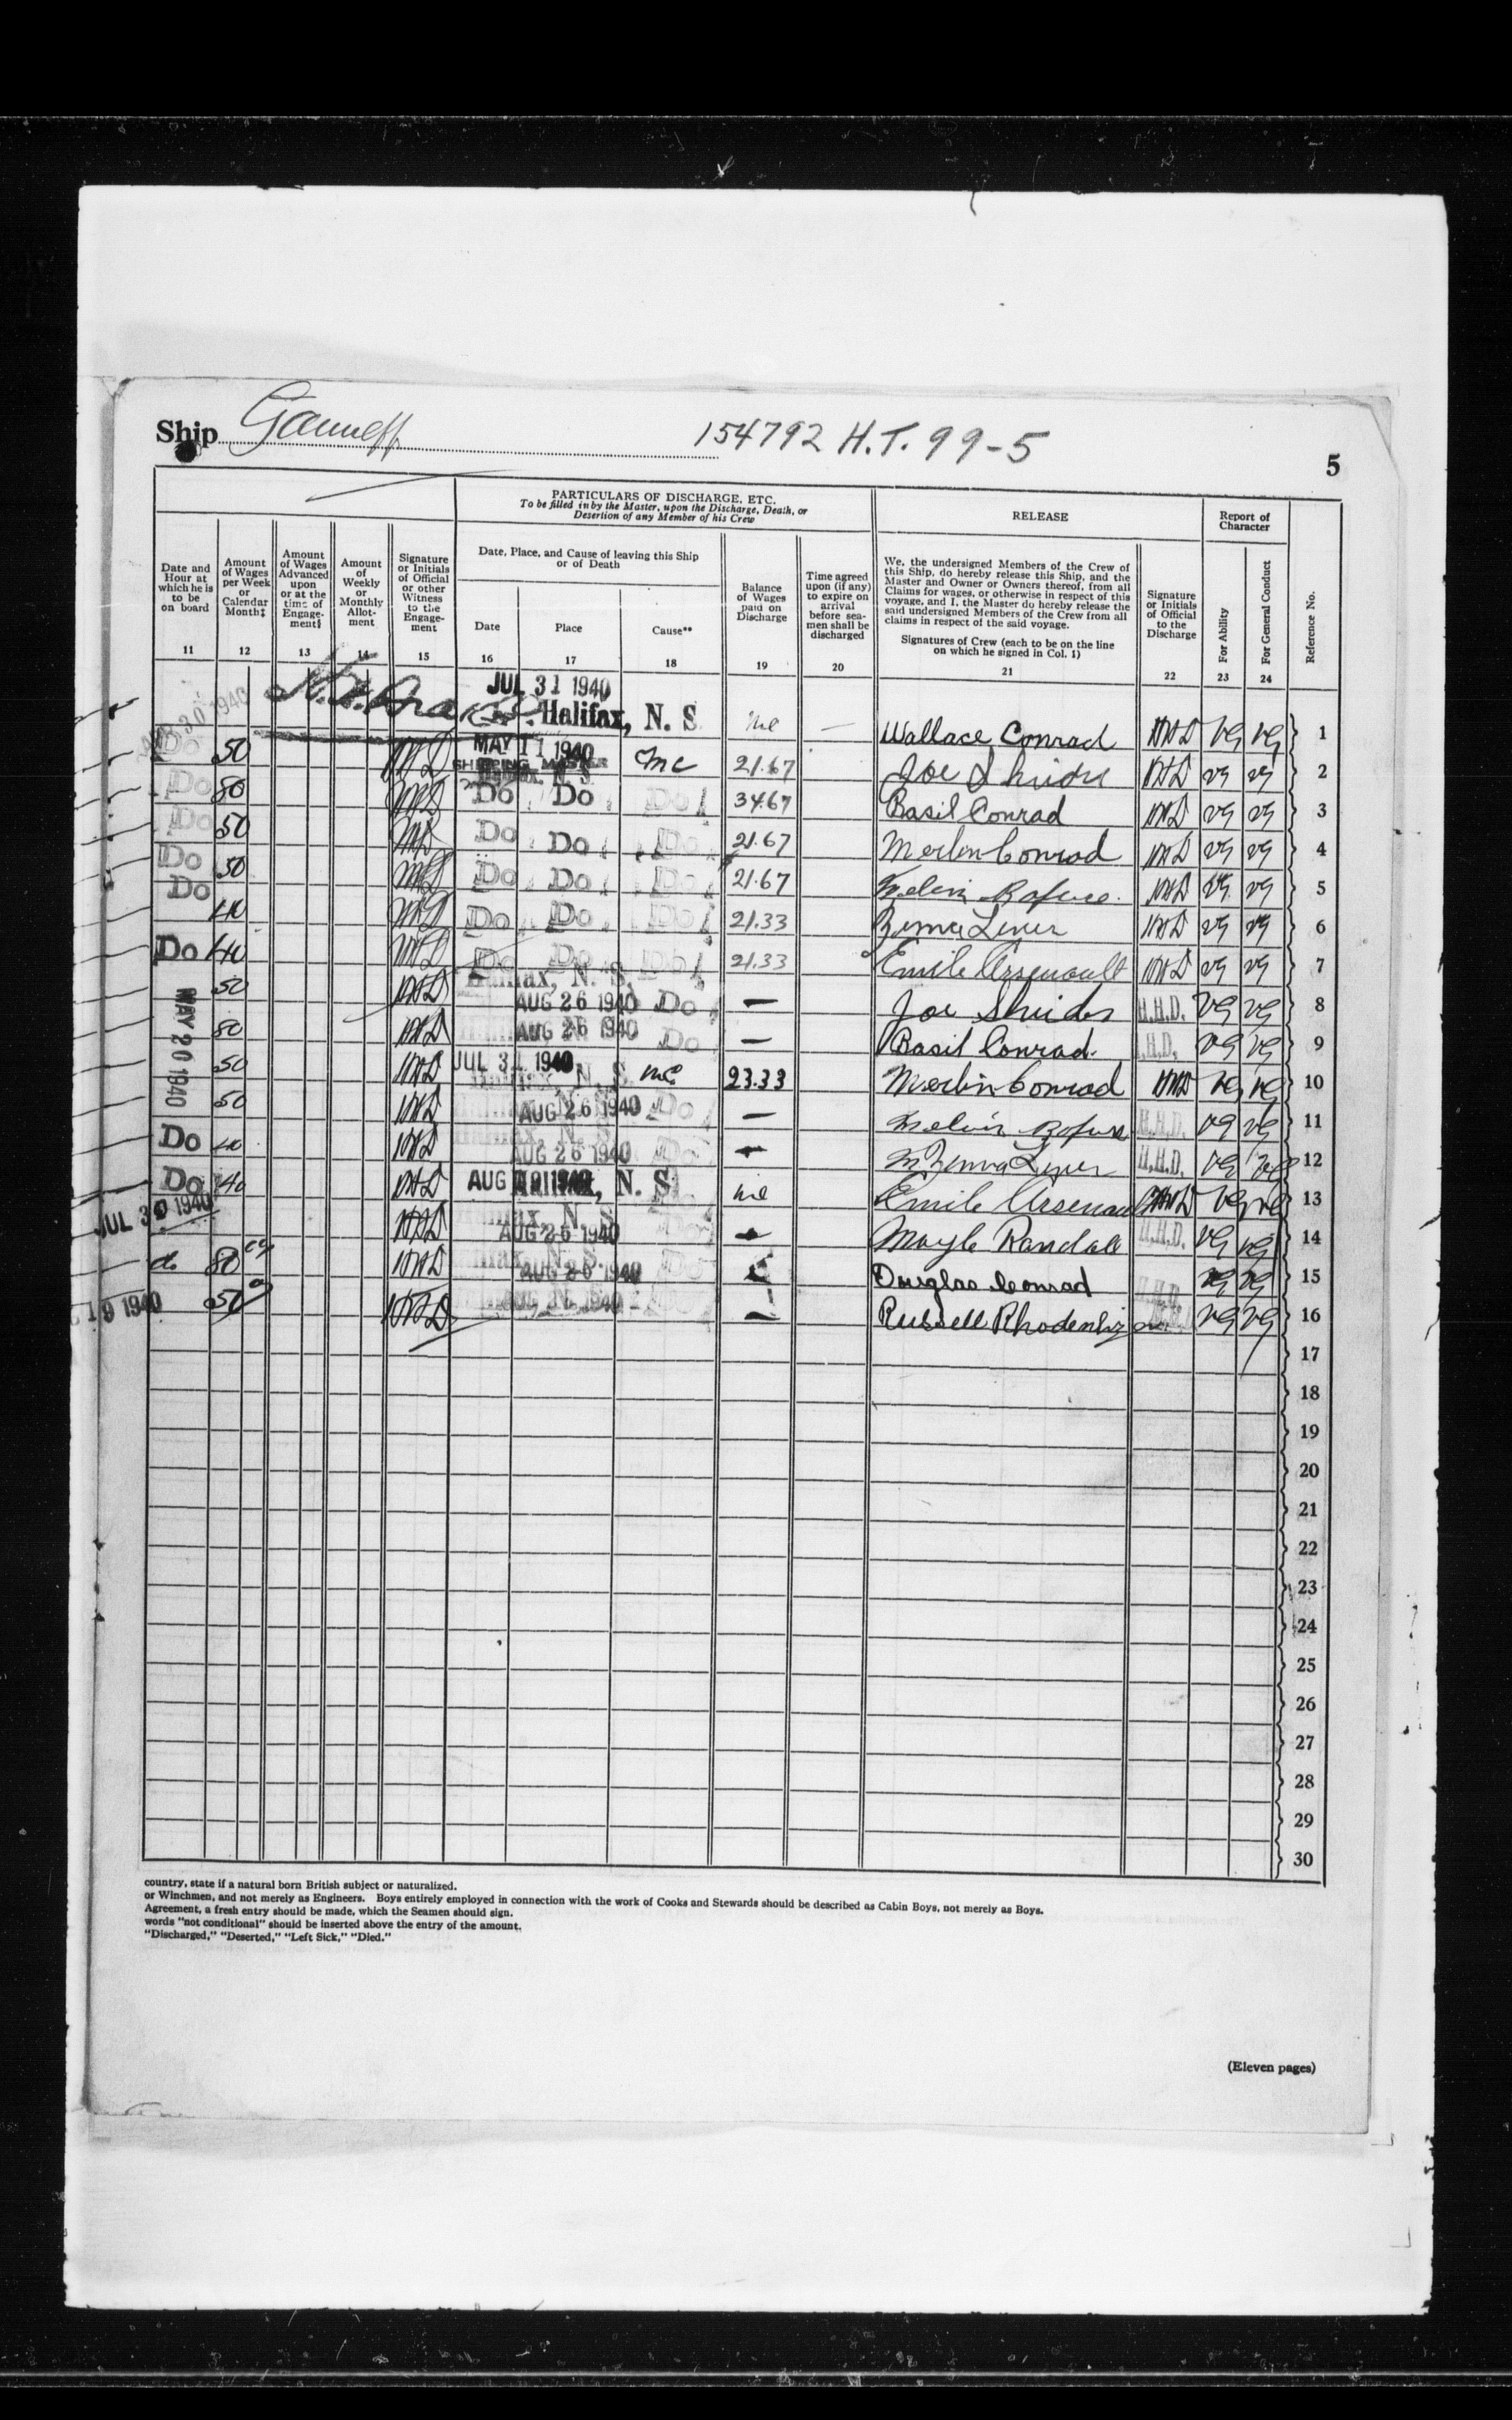 Ship
154792 H.T. 99-5
5
PARTICULARS OF DISCHARGE, ETC.
To be filled in by the Master, upon the Discharge, Death, or
Desertion of any Member of his Crew
RELEASE
Report of
Character
Date and
Hour at
which he is
to be
on board
Amount
of Wages
per Week
or
Calendar
Month‡
Amount
of Wages
Advanced
upon
or at the
time of
Engage-
ment§
Amount
of
Weekly
or
Monthly
Allot-
ment
Signature
or Initials
of Official
or other
Witness
to the
Engage-
ment
Date, Place, and Cause of leaving this Ship
or of Death
Date
Place
Cause**
Balance
of Wages
paid on
Discharge
Time agreed
upon (if any)
to expire on
arrival
before sea-
men shall be
discharged
We, the undersigned Members of the Crew of
this Ship, do hereby release this Ship, and the
Master and Owner or Owners thereof, from all
Claims for wages, or otherwise in respect of this
voyage, and I, the Master do hereby release the
said undersigned Members of the Crew from all
claims in respect of the said voyage.
Signatures of Crew (each to be on the line
on which he signed in Col. 1)
Signature
or Initials
of Official
to the
Discharge
For Ability
For General Conduct
Reference No.
11 12 13 14 15 16 17 18 19 20 21 22 23 24
JUL 31 1940 Halifax, N. S. Wallace Conrad VG VG 1
Do 50 MAY 11 1940 SHIPPING MASTER mc 21.67 Joe VG VG 2
Do 80 Do Do Do 34.67 Basil Conrad VG VG 3
Do 50 Do Do Do 21.67 Merlin Conrad VG VG 4
Do 50 Do Do Do 21.67 VG VG 5
Do 40 Do Do Do 21.33 VG VG 6
Do 40 Do Do Do 21.33 Emile Arsenault VG VG 7
MAY 20 1940 50 Halifax, N. S. AUG 26 1940 Do — Joe H.H.D. VG VG 8
80 AUG 26 1940 Do — Basil Conrad H.H.D. VG VG 9
50 JUL 31 1940 N. S. mc 23.33 Merlin Conrad VG VG 10
50 AUG 26 1940 Do — H.H.D. VG VG 11
Do 40 AUG 26 1940 — H.H.D. VG VG 12
Do 40 AUG 1940 N. S. Emile Arsenault VG VG 13
JUL 30 1940 AUG 26 1940 — Randall H.H.D. VG VG 14
do 80 AUG 26 1940 Douglas Conrad H.H.D. VG VG 15
19 1940 50 — Russell Rhodenhizer VG VG 16
17
18
19
20
21
22
23
24
25
26
27
28
29
30
country, state if a natural born British subject or naturalized.
or Winchmen, and not merely as Engineers. Boys entirely employed in connection with the work of Cooks and Stewards should be described as Cabin Boys, not merely as Boys.
Agreement, a fresh entry should be made, which the Seamen should sign.
words "not conditional" should be inserted above the entry of the amount.
"Discharged," "Deserted," "Left Sick," "Died."
(Eleven pages)